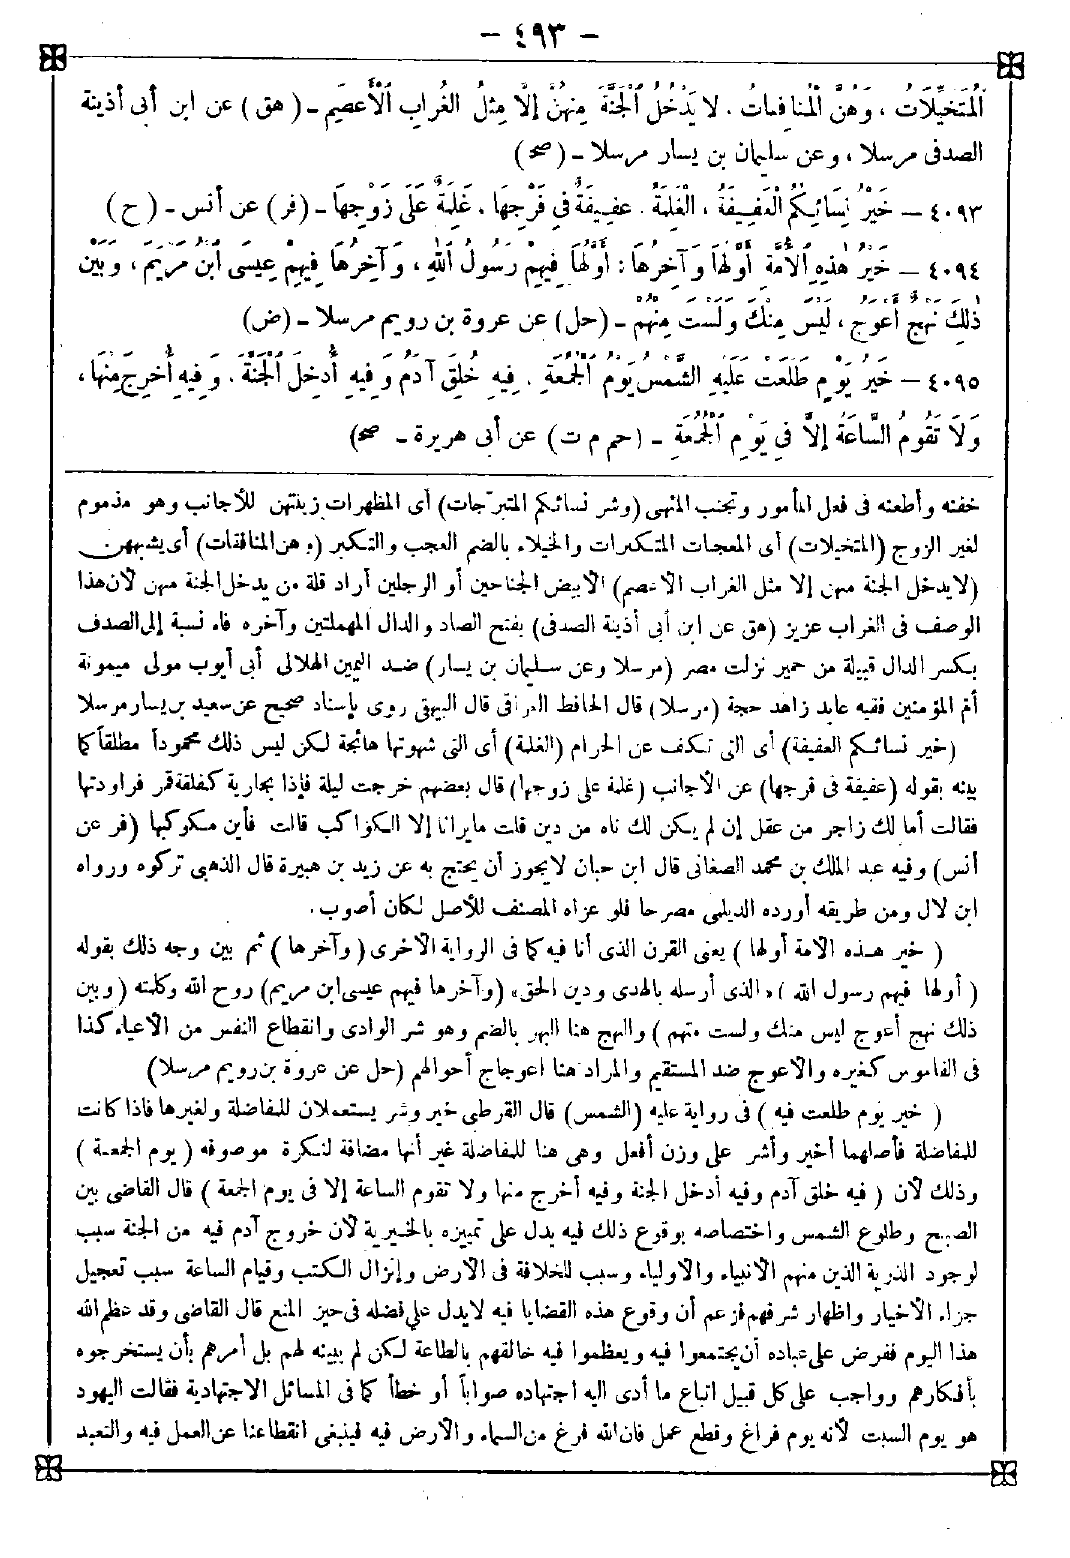 — ٤٩٣ —
الْمُتَخَيِّلَاتُ ، وَهُنَّ الْمُنَافِقَاتُ ، لَا يَدْخُلُ الْجَنَّةَ مِنْهُنَّ إِلَّا مِثْلُ الْغُرَابِ الْأَعْصَمِ ـ ( هق ) عن ابن أبى أذينة
الصدفى مرسلا ، وعن سليمان بن يسار مرسلا ـ (صح)
٤٠٩٣ — خَيْرُ نِسَائِكُمُ الْعَفِيفَةُ ، الْغَلِمَةُ . عَفِيفَةٌ فِي فَرْجِهَا ، غَلِمَةٌ عَلَى زَوْجِهَا ـ (فر) عن أنس ـ ( ح )
٤٠٩٤ — خَيْرُ هٰذِهِ الْأُمَّةِ أَوَّلُهَا وَآخِرُهَا : أَوَّلُهَا فِيهِمْ رَسُولُ اللهِ ، وَآخِرُهَا فِيهِمْ عِيسَى ابْنُ مَرْيَمَ ، وَبَيْنَ
ذٰلِكَ نَهْجٌ أَعْوَجُ ، لَيْسَ مِنْكَ وَلَسْتَ مِنْهُمْ ـ (حل) عن عروة بن رويم مرسلا ـ (ض)
٤٠٩٥ — خَيْرُ يَوْمٍ طَلَعَتْ عَلَيْهِ الشَّمْسُ يَوْمُ الْجُمُعَةِ . فِيهِ خُلِقَ آدَمُ وَفِيهِ أُدْخِلَ الْجَنَّةَ . وَفِيهِ أُخْرِجَ مِنْهَا ،
وَلَا تَقُومُ السَّاعَةُ إِلَّا فِي يَوْمِ الْجُمُعَةِ ـ (حم م ت) عن أبى هريرة ـ صح)
خفته وأطعنه فى فعل المأمور وتجنب المنهى (وشر نسائكم المتبرّجات) أى المظهرات زينتهن للأجانب وهو مذموم
لغير الزوج (المتخيلات) أى المعجبات المتكبرات والخيلاء بالضم العجب والتكبر (وهن المنافقات) أى يشبههن
(لا يدخل الجنة منهن إلا مثل الغراب الأعصم) الأبيض الجناحين أو الرجلين أراد قلة من يدخل الجنة منهن لأن هذا
الوصف فى الغراب عزيز (هق عن ابن أبى أذينة الصدفى) بفتح الصاد والدال المهملتين وآخره فاء نسبة إلى الصدف
بكسر الدال قبيلة من حمير نزلت مصر (مرسلا وعن سليمان بن يسار) ضد اليمين الهلالى أبى أيوب مولى ميمونة
أم المؤمنين فقيه عابد زاهد حجة (مرسلا) قال الحافظ العراقى قال البيهقى روى بإسناد صحيح عن سعيد بن يسار مرسلا
(خير نسائكم العفيفة) أى التى تكف عن الحرام (الغلمة) أى التى شهوتها هائجة لكن ليس ذلك محموداً مطلقاً كما
بينه بقوله (عفيفة فى فرجها) عن الأجانب (غلمة على زوجها) قال بعضهم خرجت ليلة فإذا بجارية كفلقة قمر فراودتها
فقالت أما لك زاجر من عقل إن لم يكن لك ناه من دين قلت ما يرانا إلا الكواكب قالت فأين مكوكبها (فر عن
أنس) وفيه عبد الملك بن محمد الصغانى قال ابن حبان لا يجوز أن يحتج به عن زيد بن هبيرة قال الذهبى تركوه ورواه
ابن لال ومن طريقه أورده الديلمى مصرحا فلو عزاه المصنف للأصل لكان أصوب .
( خير هذه الامة أولها ) يعنى القرن الذى أنا فيه كما فى الرواية الأخرى ( وآخرها ) ثم بين وجه ذلك بقوله
( أولها فيهم رسول الله ) الذى أرسله بالهدى ودين الحق (وآخرها فيهم عيسى ابن مريم) روح الله وكلمته ( وبين
ذلك نهج أعوج ليس منك ولست منهم ) والنهج هنا البهر بالضم وهو شر الوادى وانقطاع النفس من الأعياء كذا
فى القاموس كغيره والأعوج ضد المستقيم والمراد هنا اعوجاج أحوالهم (حل عن عروة بن رويم مرسلا)
( خير يوم طلعت فيه ) فى رواية عليه (الشمس) قال القرطبى خير وشر يستعملان للمفاضلة ولغيرها فاذا كانت
للمفاضلة فأصلهما أخير وأشر على وزن أفعل وهى هنا للمفاضلة غير أنها مضافة لنكرة موصوفه ( يوم الجمعة )
وذلك لأن ( فيه خلق آدم وفيه أدخل الجنة وفيه أخرج منها ولا تقوم الساعة إلا فى يوم الجمعة ) قال القاضى بين
الصبح وطلوع الشمس واختصاصه بوقوع ذلك فيه يدل على تميزه بالخيرية لأن خروج آدم فيه من الجنة سبب
لوجود الذرية الذين منهم الأنبياء والأولياء وسبب للخلافة فى الأرض وإنزال الكتب وقيام الساعة سبب تعجيل
جزاء الأخيار واظهار شرفهم فزعم أن وقوع هذه القضايا فيه لا يدل على فضله فى حيز المنع قال القاضى وقد عظم الله
هذا اليوم ففرض على عباده أن يجتمعوا فيه ويعظموا فيه خالقهم بالطاعة لكن لم يبينه لهم بل أمرهم بأن يستخرجوه
بأفكارهم وواجب على كل قبيل اتباع ما أدى اليه اجتهاده صواباً أو خطأ كما فى المسائل الاجتهادية فقالت اليهود
هو يوم السبت لأنه يوم فراغ وقطع عمل فان الله فرغ من السماء والأرض فيه فينبغى انقطاعنا عن العمل فيه والتعبد